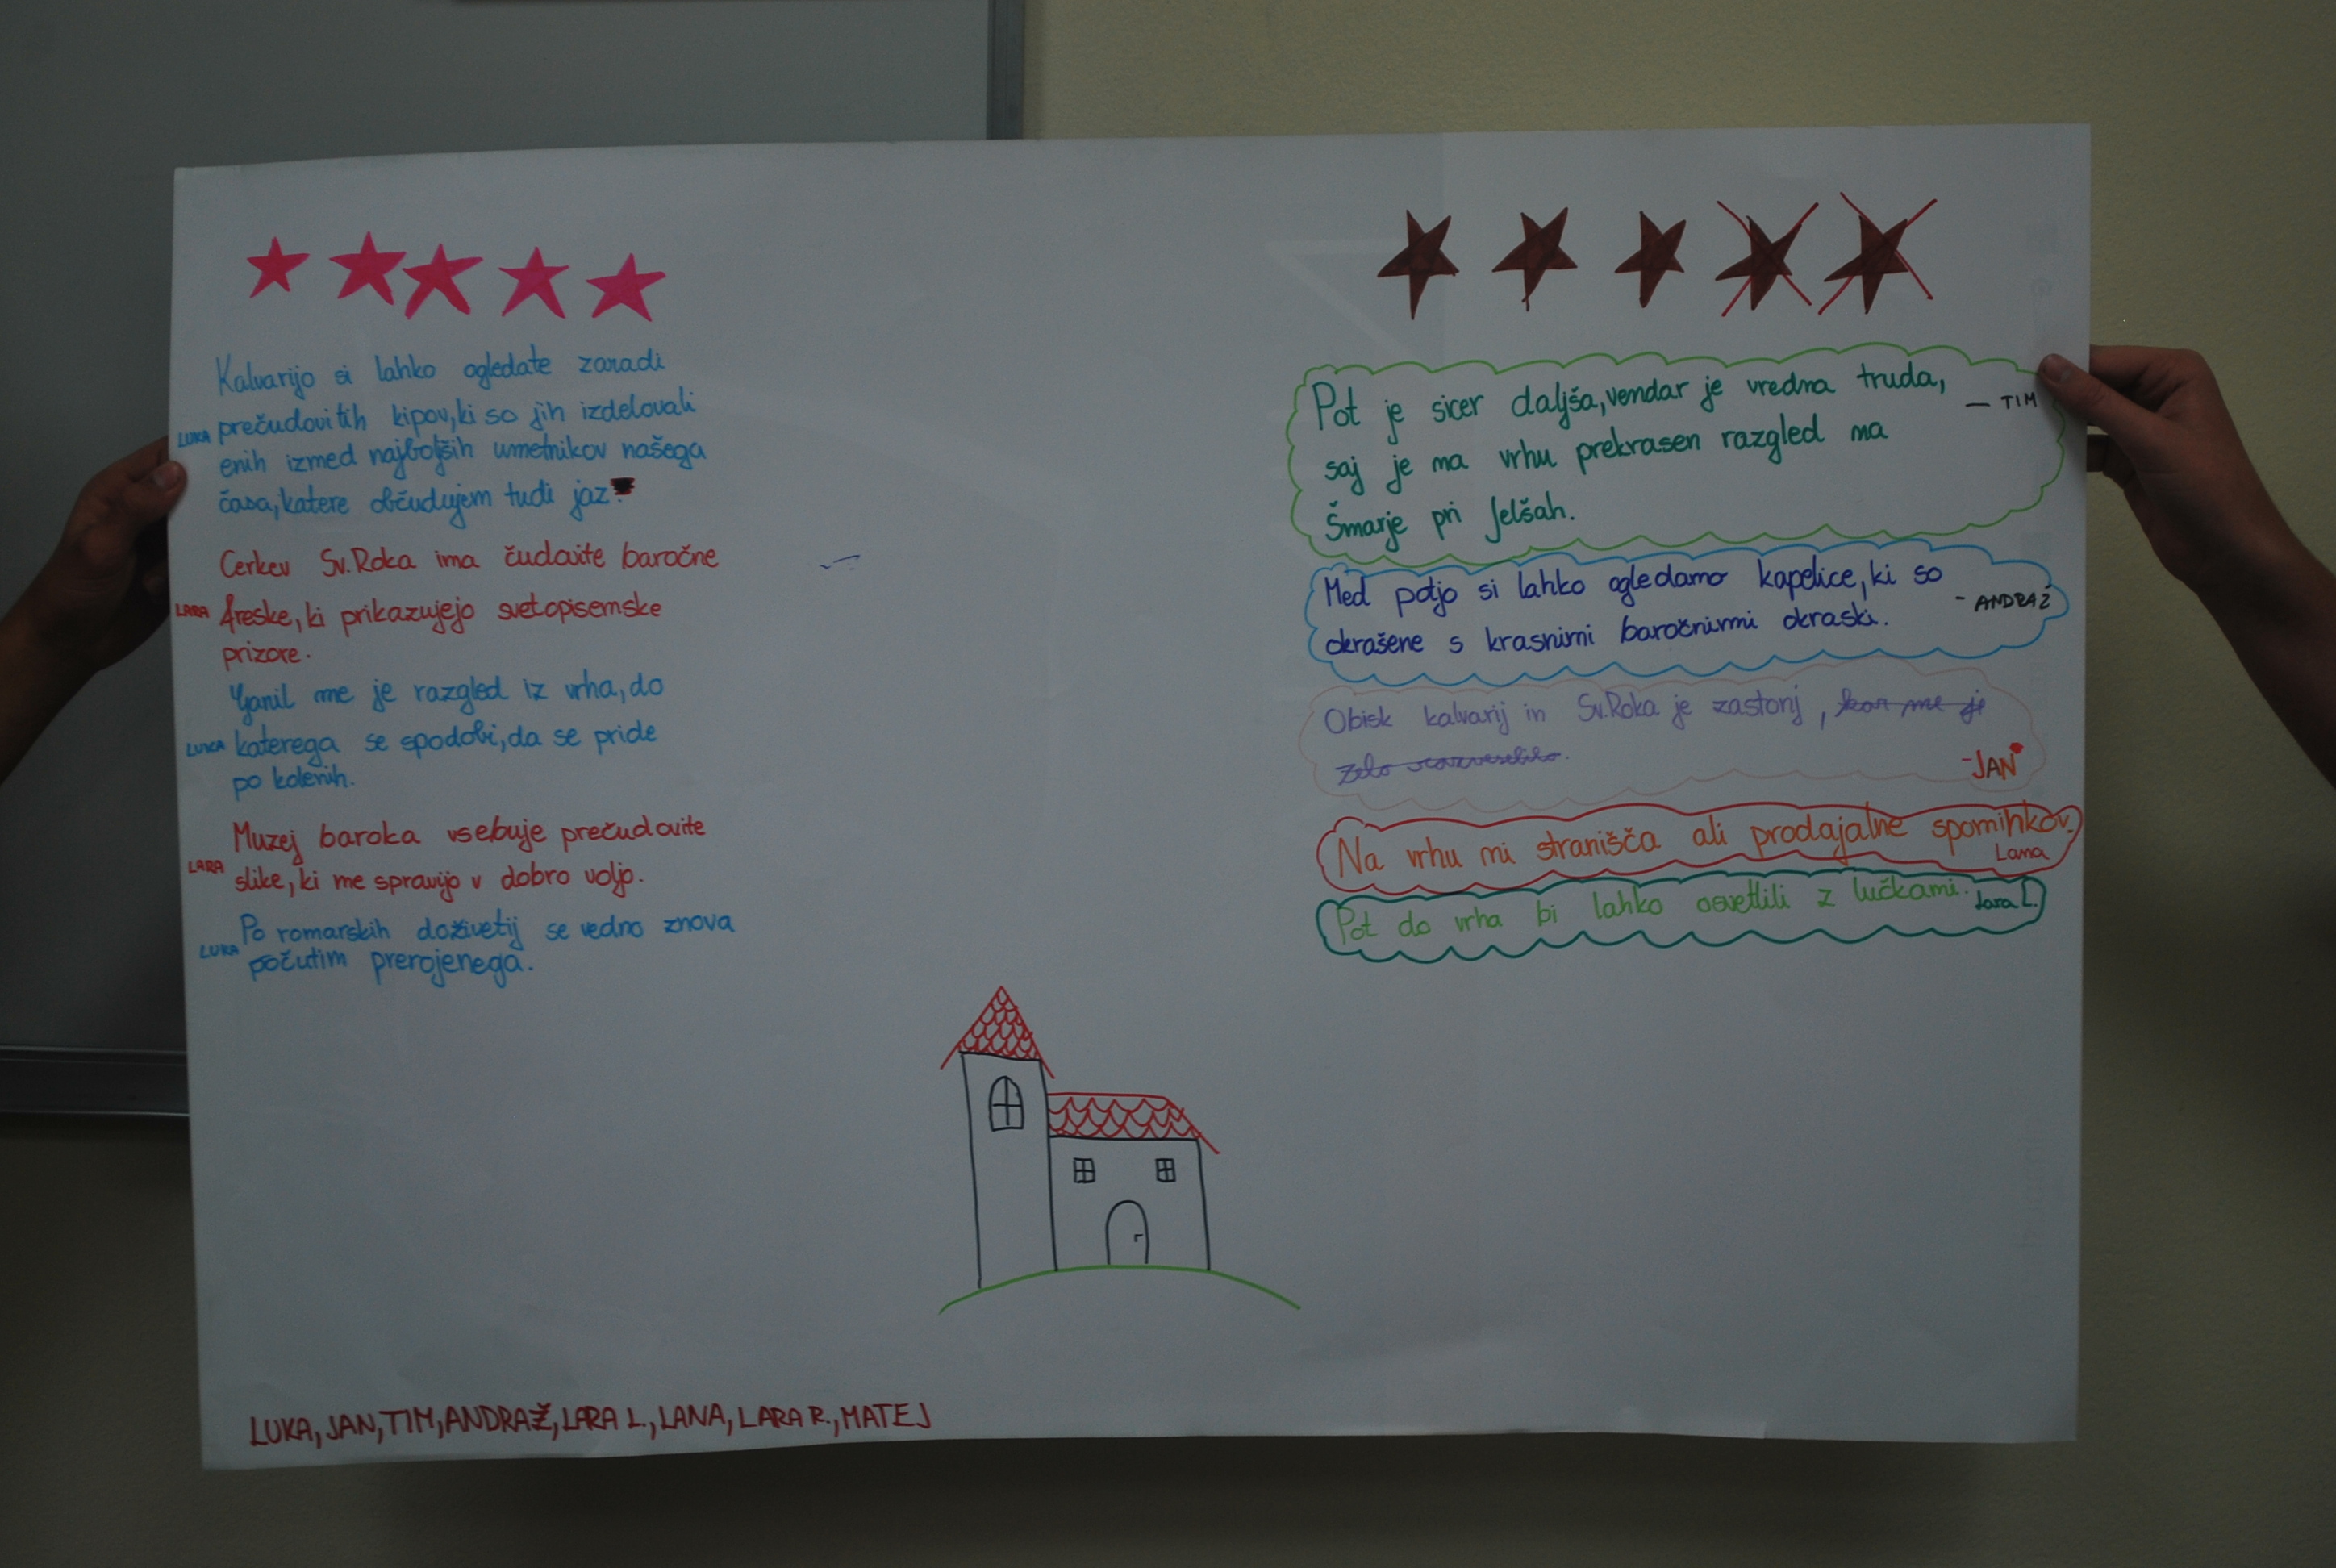 Kalvarijo si lahko ogledate zaradi
LUKA prečudovitih kipov, ki so jih izdelovali
enih izmed najboljših umetnikov našega
časa, katere občudujem tudi jaz.
Cerkev Sv. Roka ima čudovite baročne
LARA freske, ki prikazujejo svetopisemske
prizore.
Ganil me je razgled iz vrha, do
LUKA katerega se spodobi, da se pride
po kolenih.
Muzej baroka vsebuje prečudovite
LARA slike, ki me spravijo v dobro voljo.
Po romarskih doživetij se vedno znova
LUKA počutim prerojenega.
Pot je sicer daljša, vendar je vredna truda,
— TIM
saj je na vrhu prekrasen razgled na
Šmarje pri Jelšah.
Med potjo si lahko ogledamo kapelice, ki so
- ANDRAŽ
okrašene s krasnimi baročnimi okraski.
Obisk kalvarij in Sv. Roka je zastonj, kar me je
zelo razveselilo.
-JAN
Na vrhu ni stranišča ali prodajalne spominkov.
Lana
Pot do vrha bi lahko osvetlili z lučkami.
Lara L.
LUKA, JAN, TIM, ANDRAŽ, LARA L., LANA, LARA R., MATEJ